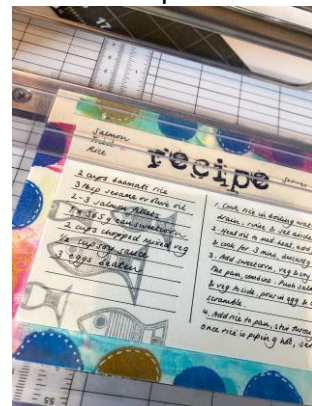 Salmon
Fried
Rice
recipe
2 cups basmati rice
3 tbsp sesame or olive oil
2-3 salmon fillets
1 x 365g can sweetcorn
2 cups chopped mixed veg
1/4 cup soy sauce
3 eggs beaten
1. Cook rice in boiling
drain, rinse & set
2. Heat oil to med heat, add
& cook for 3 mins,
3. Add sweetcorn, veg & soy
the pan, combine. Push
& veg to side, pour in egg &
scramble.
4. Add rice to pan, stir through
once rice is piping hot,